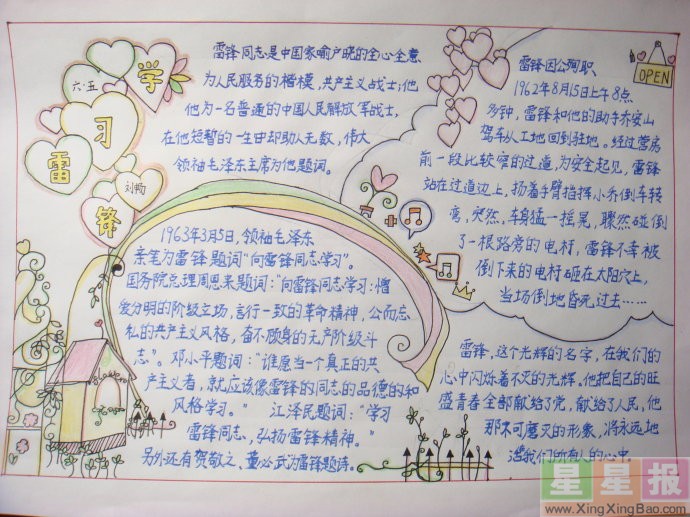 学
习
雷
锋
六·五
刘畅
雷锋同志是中国家喻户晓的全心全意
为人民服务的楷模，共产主义战士；他
他为一名普通的中国人民解放军战士，
在他短暂的一生中却助人无数，伟大
领袖毛泽东主席为他题词。
雷锋因公殉职
1962年8月15日上午8点
多钟，雷锋和他的助手乔安山
驾车从工地回到驻地。经过营房
前一段比较窄的过道，为安全起见，雷锋
站在过道边上，扬着手臂指挥小乔倒车转
弯，突然，车身猛一摇晃，骤然碰倒
了一根路旁的电杆，雷锋不幸被
倒下来的电杆砸在太阳穴上，
当场倒地昏死过去……
OPEN
1963年3月5日，领袖毛泽东
亲笔为雷锋题词“向雷锋同志学习”。
国务院总理周恩来题词：“向雷锋同志学习：憎
爱分明的阶级立场，言行一致的革命精神，公而忘
私的共产主义风格，奋不顾身的无产阶级斗
志”。邓小平题词：“谁愿当一个真正的共
产主义者，就应该像雷锋的同志的品德的和
风格学习。” 江泽民题词：“学习
雷锋同志，弘扬雷锋精神。”
另外还有贺敬之、董必武为雷锋题诗。
雷锋，这个光辉的名字，在我们的
心中闪烁着不灭的光辉。他把自己的旺
盛青春全部献给了党，献给了人民，他
那不可磨灭的形象，将永远地
活我们所有人的心中
星星报
www.XingXingBao.com